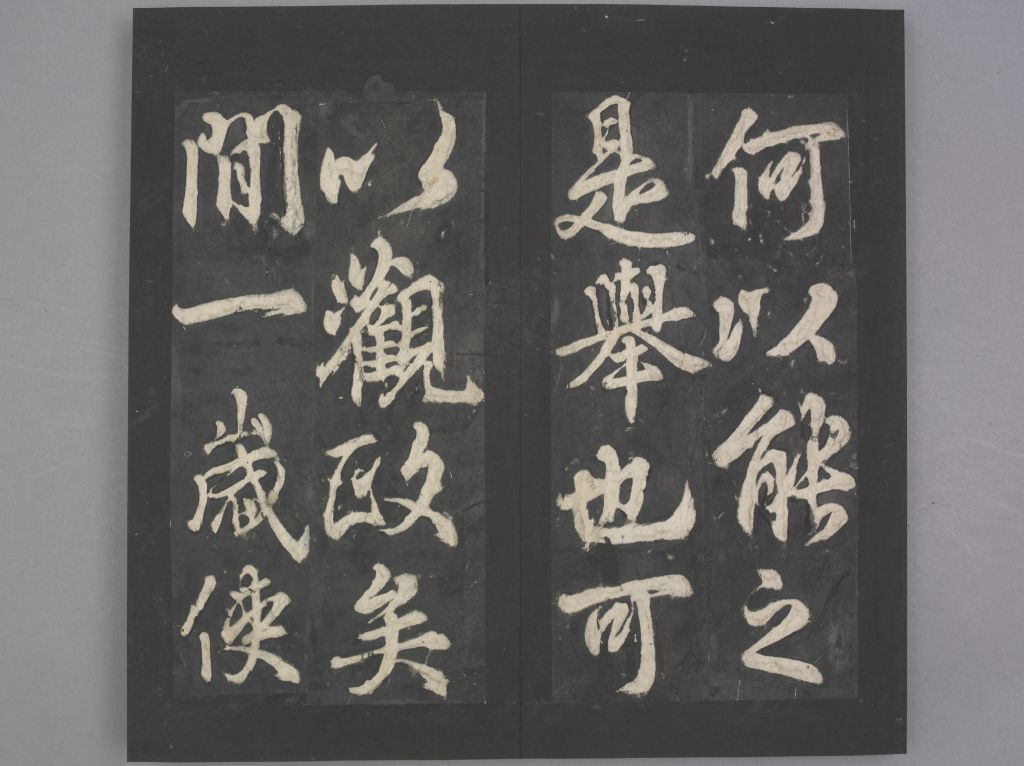 何以能之
是舉也可
以觀政矣
閒一歲使